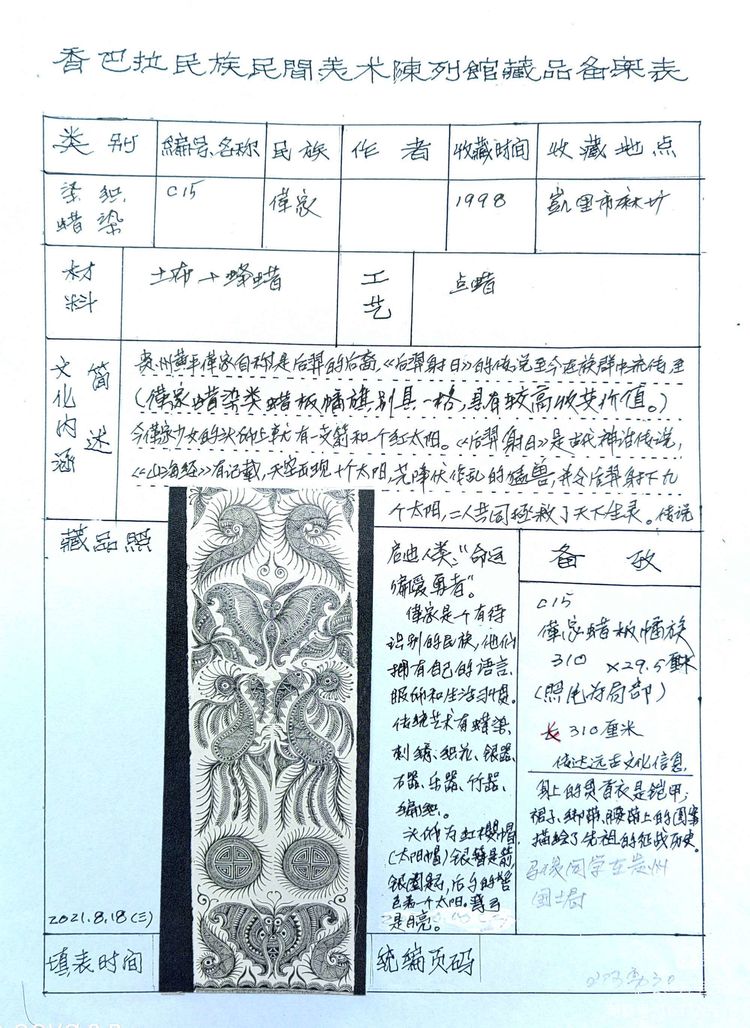 香巴拉民族民間美术陳列館藏品备案表
类别 编号、名称 民族 作者 收藏时间 收藏地点
染织 C15 僅家 1998 凱里市麻圹
蜡染
材料 土布+蜂蜡 工艺 点蜡
文化内涵简述
贵州黄平僅家自称是后羿的后裔,《后羿射日》的传说至今在族群中流传至
(僅家蜡染类蜡板幡旗别具一格,具有较高收芖价值。)
今僅家少女的头饰上就有一支箭和一个红太阳。《后羿射日》是古代神话传说,
《山海经》有记载,天空出现十个太阳,尧降伏作乱的猛兽,并令后羿射下九
个太阳,二人共同拯救了天下生灵。传说
藏品照
启迪人类:“命运
偏爱勇者”。
僅家是个有待
识别的民族,他们
拥有自己的语言、
服饰和生活习惯。
传统艺术有蜂染、
刺绣、织花、银器、
石器、乐器、竹器、
编织。
头饰为红樱帽
(太阳帽)银簪是箭,
银圈是弓,后弓的
色表一个太阳,弯弓
是月亮。
备孜
C15
僅家蜡板幡族
310 ×29.5厘米
(照片为局部)
长310厘米
传达远古文化信息,
身上的贯首衣是铠甲;
裙子、绑带、腰带上的图案
描绘了先祖的征战历史。
同学在贵州
2021.8.18(三)
填表时间 统编页码